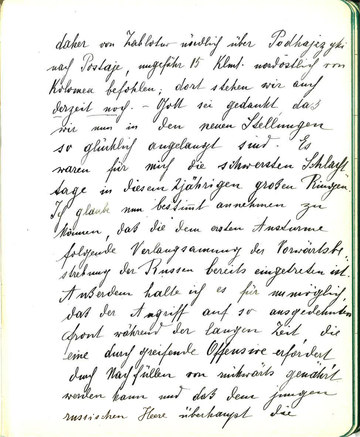 daher von Zablotow nördlich über Podhajczyki
nach Postaje, ungefähr 15 Klmt. nordöstlich von
Kolomea befohlen; dort stehen wir auch
derzeit noch. – Gott sei gedankt daß
wir nun in den neuen Stellungen
so glücklich angelangt sind. Es
waren für mich die schwersten Schlacht
tage in diesem 2jährigen großen Ringen.
Ich glaube nun bestimmt annehmen zu
können, daß die dem ersten Ansturme
folgende Verlangsamung der Vorwärtsbe-
strebung der Russen bereits eingetreten ist.
Außerdem halte ich es für unmöglich,
daß der Angriff auf so ausgedehnten
Front während der langen Zeit die
eine durchgreifende Offensive erfordert
durch Nachfüllen von rückwärts genährt
werden kann und daß dem jungen
russischen Heere überhaupt die